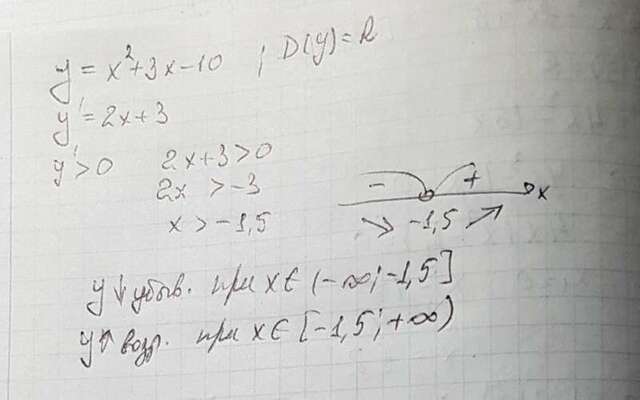 y = x²+3x-10 ; D(y)=R
y' = 2x+3
y'>0 2x+3>0
2x > -3
x > -1,5
- + x
↘ -1,5 ↗
y↓ убыв. при x∈ (-∞; -1,5]
y↑ возр. при x∈ [-1,5; +∞)